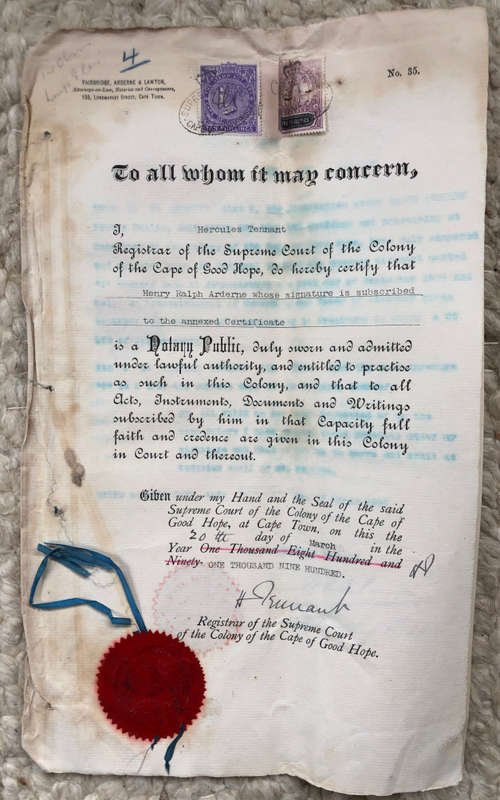 4
FAIRBRIDGE, ARDERNE & LAWTON,
Attorneys-at-Law, Notaries and Conveyancers,
No. 35.
To all whom it may concern,
I, Hercules Tennant
Registrar of the Supreme Court of the Colony
of the Cape of Good Hope, do hereby certify that
Henry Ralph Arderne whose signature is subscribed
to the annexed Certificate
is a Notary Public, duly sworn and admitted
under lawful authority, and entitled to practise
as such in this Colony, and that to all
Acts, Instruments, Documents and Writings
subscribed by him in that Capacity full
faith and credence are given in this Colony
in Court and thereout.
Given under my Hand and the Seal of the said
Supreme Court of the Colony of the Cape of
Good Hope, at Cape Town, on this the
20th day of March in the
Year One Thousand Eight Hundred and
Ninety- ONE THOUSAND NINE HUNDRED.
H Tennant
Registrar of the Supreme Court
of the Colony of the Cape of Good Hope.